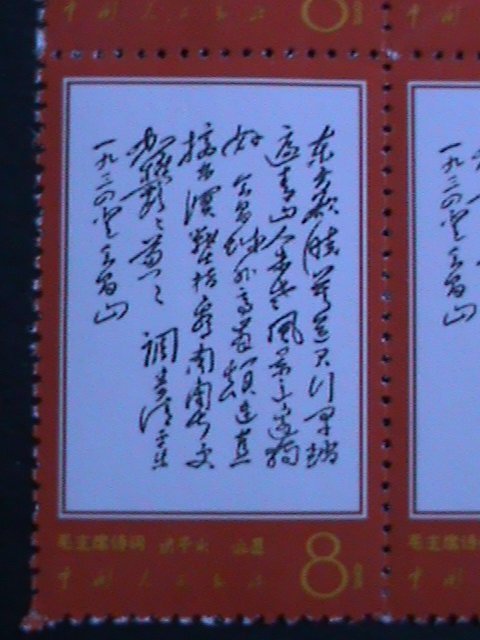 中国人民邮政 8分
中国
东方欲晓莫道君行早踏
遍青山人未老风景这边独
好会昌城外高峰颠连直
接东溟战士指看南粤更
加郁〻葱〻 调寄清平乐
一九三四登会昌山
一九三四登会昌山
毛主席诗词 清平乐 会昌
中国人民邮政 8分
毛主席诗词
中国